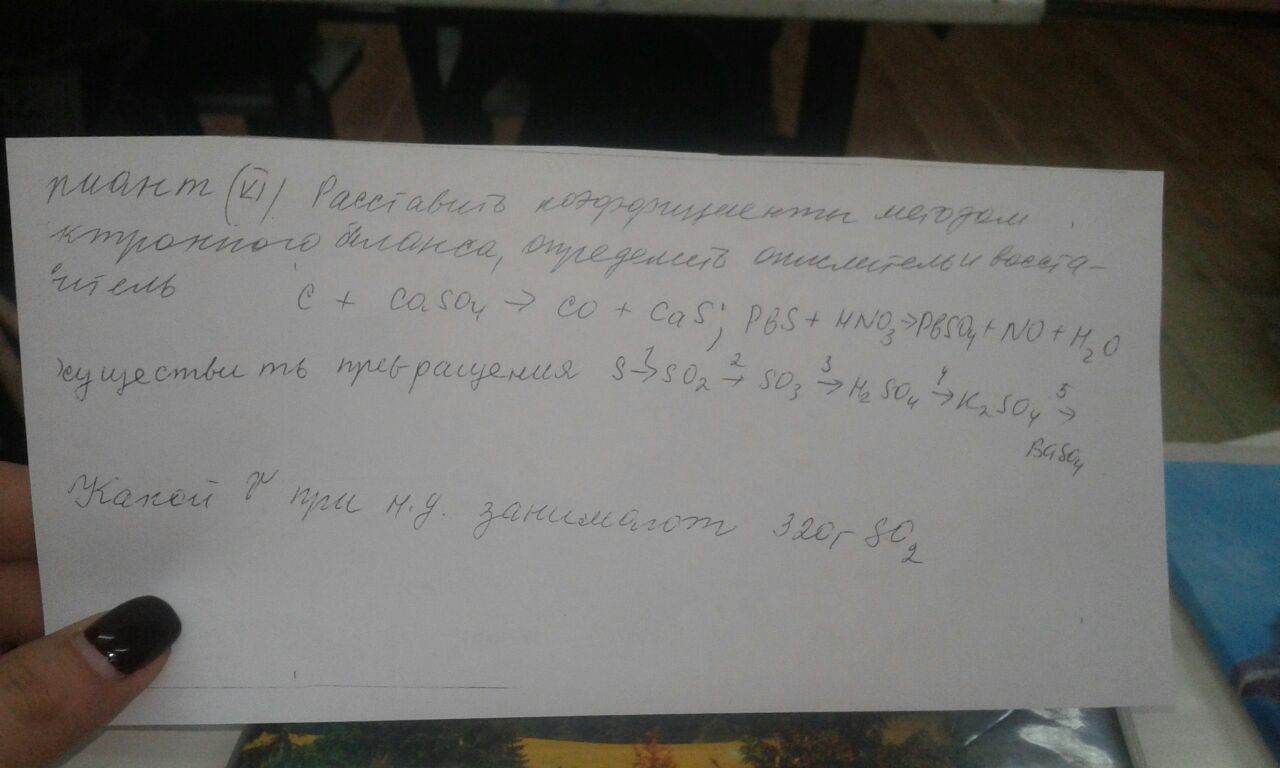 риант (VI) Расставить коэффициенты методом
ктронного баланса, определить окислитель и восста-
итель C + CaSO4 → CO + CaS; PbS + HNO3 → PbSO4 + NO + H2O
существить превращения S 1→ SO2 2→ SO3 3→ H2SO4 4→ K2SO4 5→
BaSO4
Какой V при н.у. занимают 320г SO2